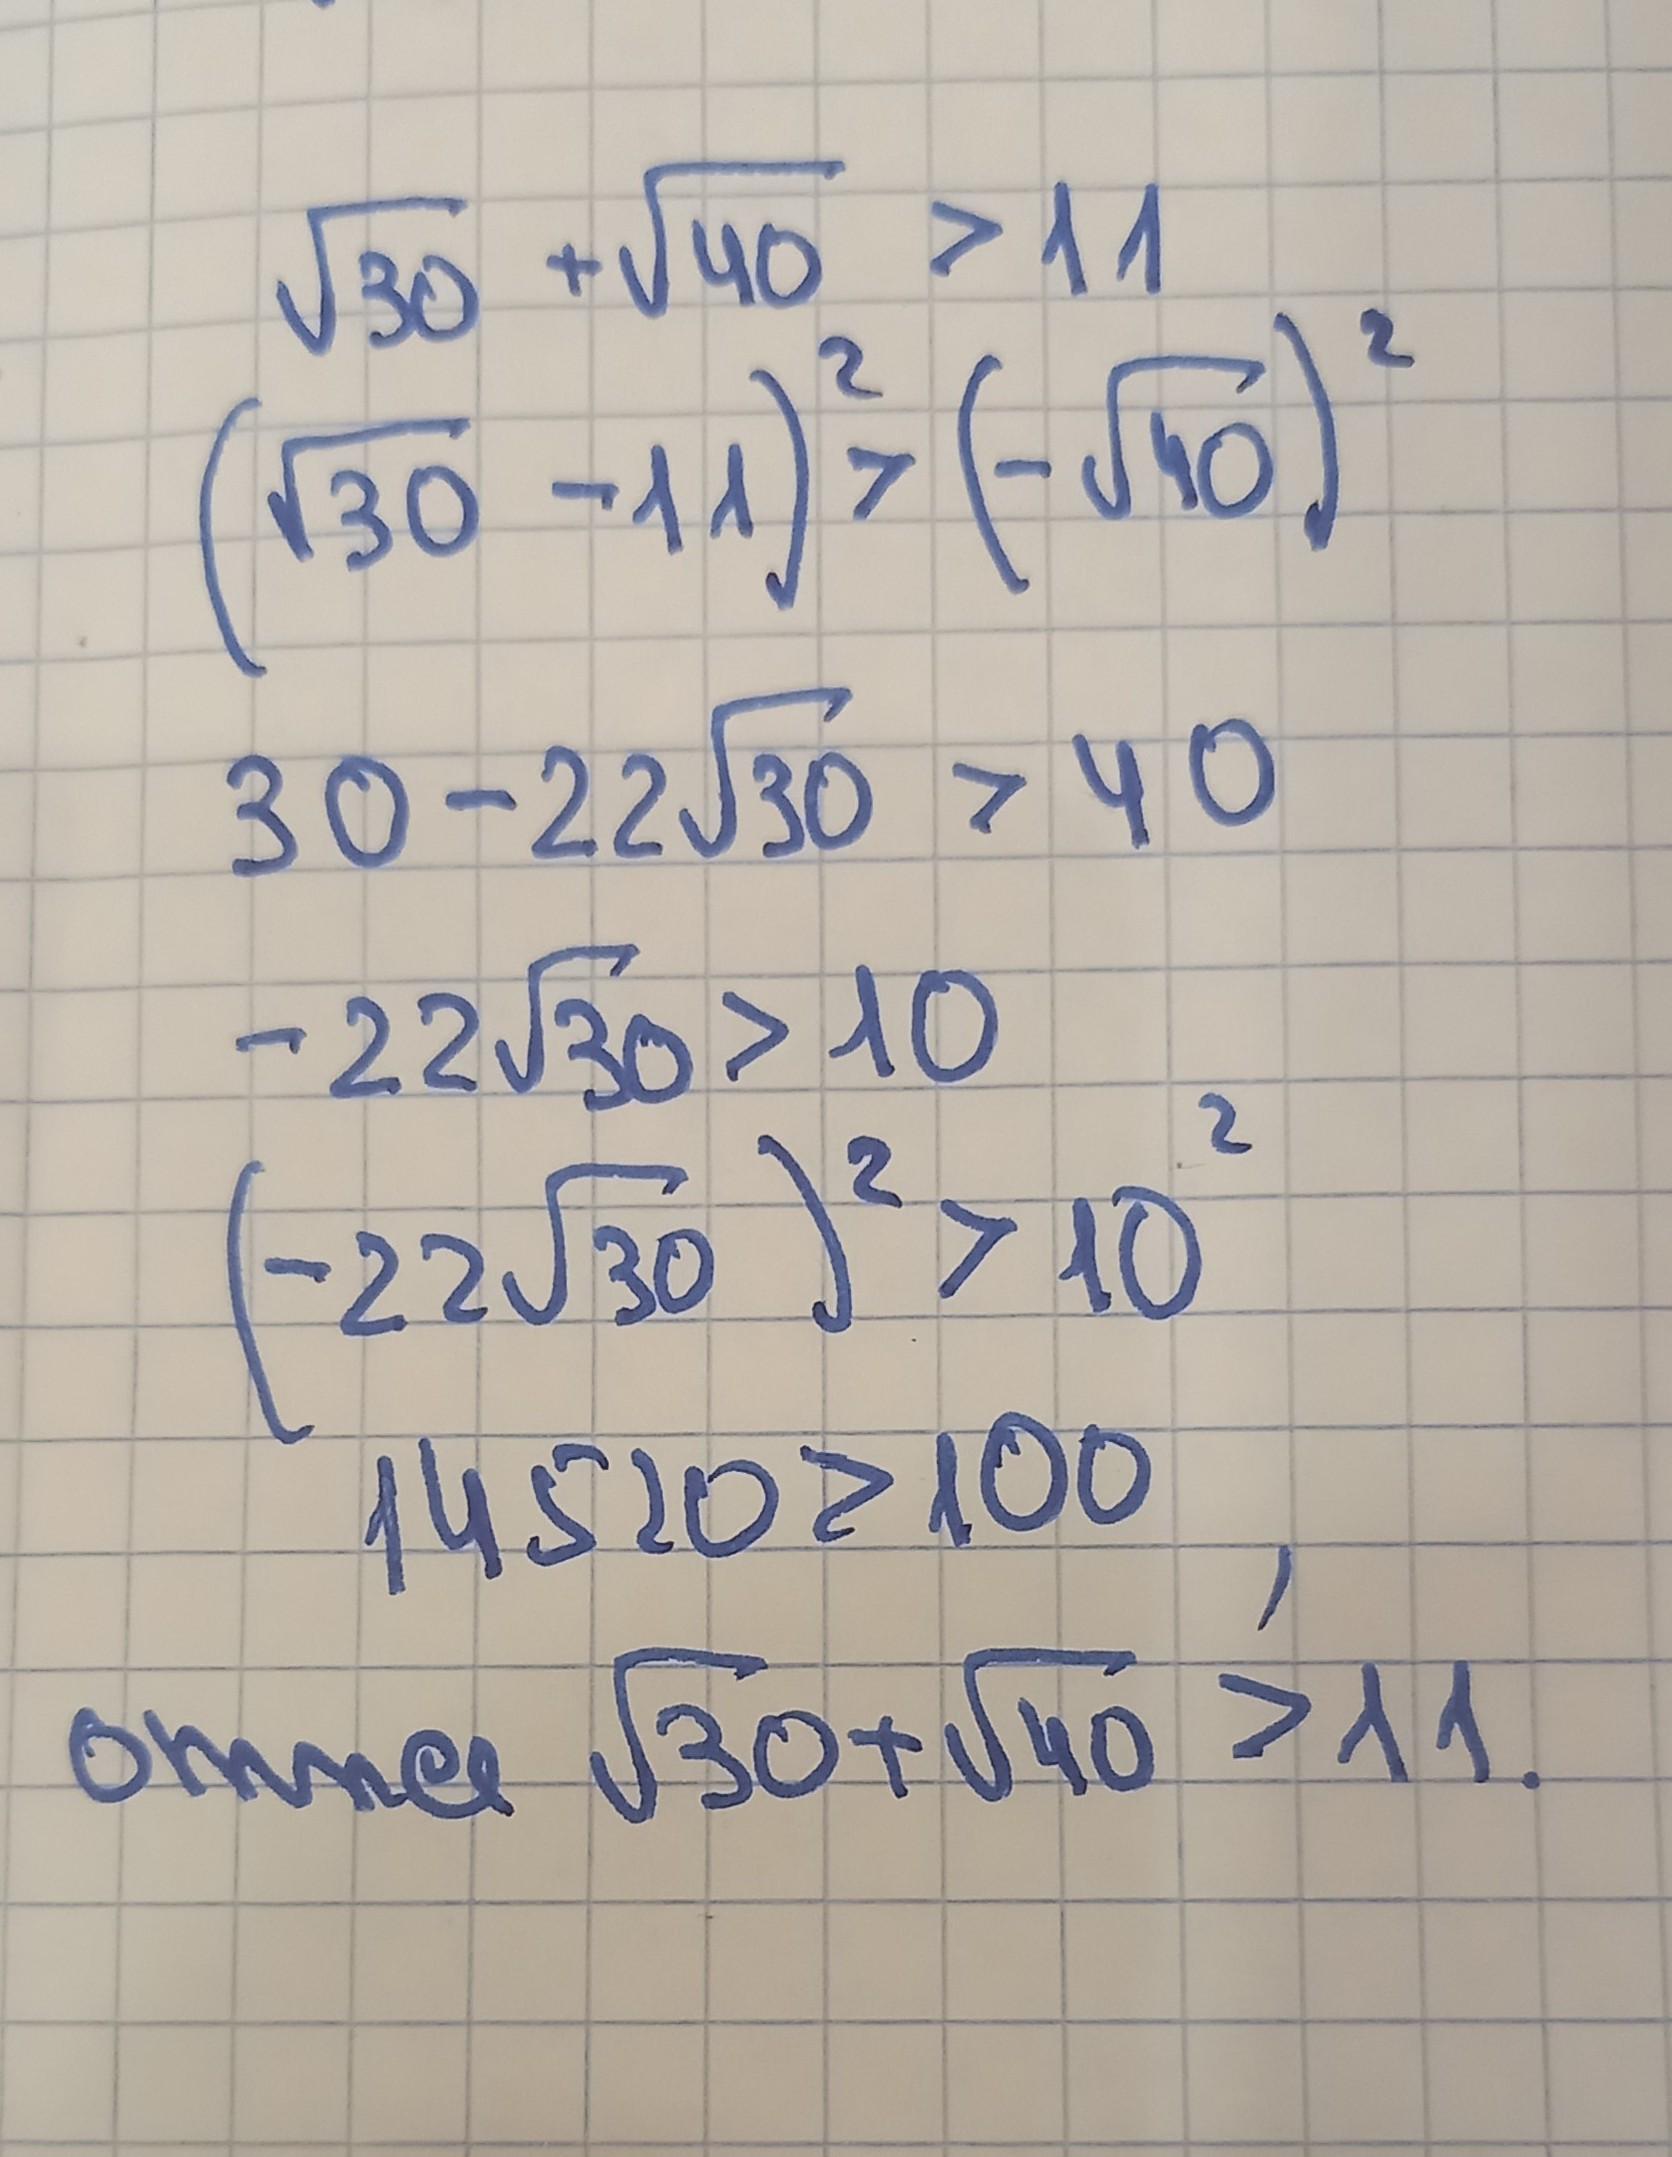 √30 + √40 > 11
(√30 - 11)² > (-√40)²
30 - 22√30 > 40
-22√30 > 10
(-22√30)² > 10²
14520 > 100,
отже √30 + √40 > 11.